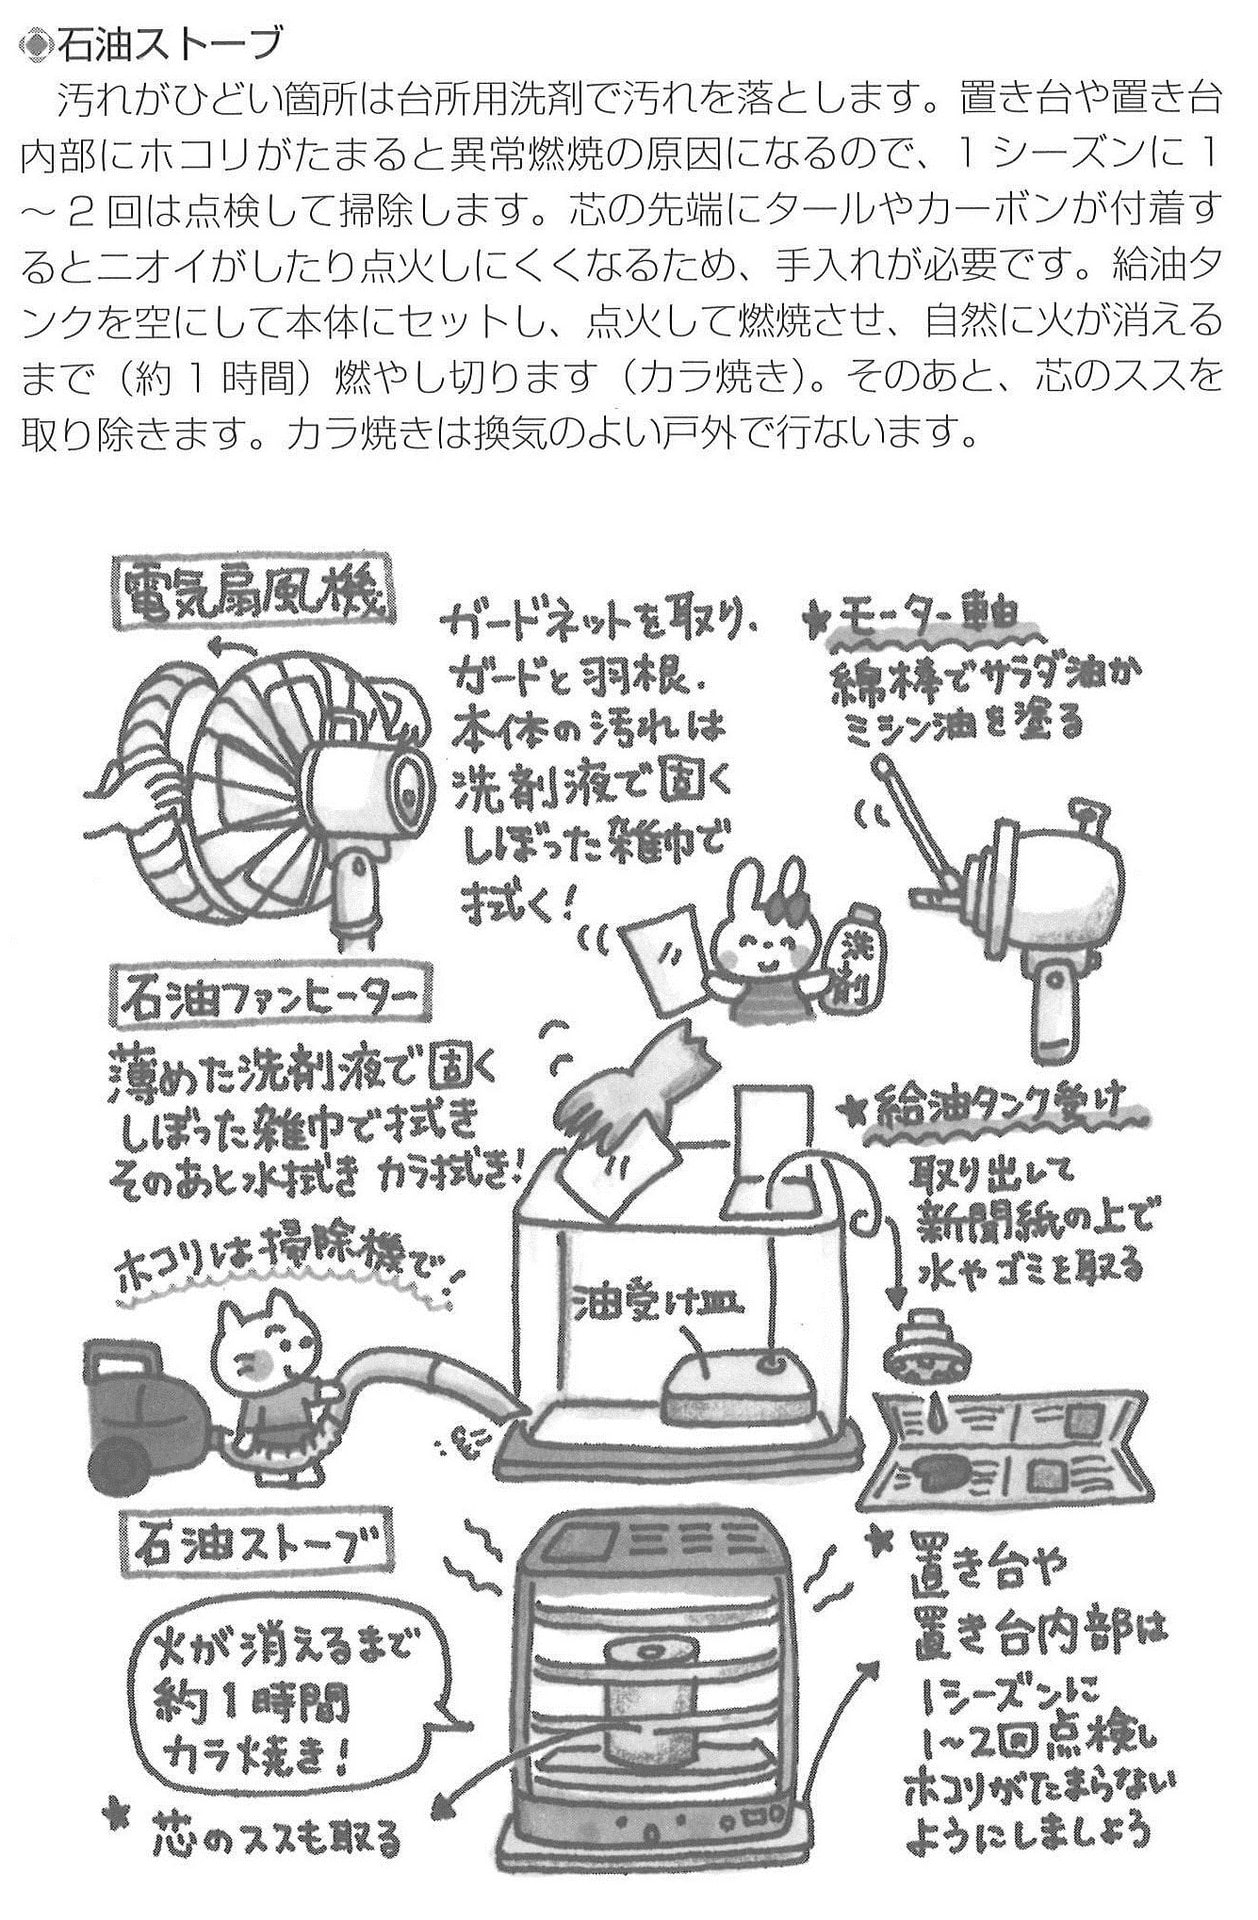 石油ストーブ
汚れがひどい箇所は台所用洗剤で汚れを落とします。置き台や置き台
内部にホコリがたまると異常燃焼の原因になるので、1シーズンに1
〜2回は点検して掃除します。芯の先端にタールやカーボンが付着す
るとニオイがしたり点火しにくくなるため、手入れが必要です。給油タ
ンクを空にして本体にセットし、点火して燃焼させ、自然に火が消える
まで（約1時間）燃やし切ります（カラ焼き）。そのあと、芯のススを
取り除きます。カラ焼きは換気のよい戸外で行ないます。
電気扇風機
ガードネットを取り、
ガードと羽根、
本体の汚れは
洗剤液で固く
しぼった雑巾で
拭く!
★モーター軸
綿棒でサラダ油か
ミシン油を塗る
洗剤
石油ファンヒーター
薄めた洗剤液で固く
しぼった雑巾で拭き
そのあと水拭き カラ拭き!
ホコリは掃除機で!
油受け皿
★給油タンク受け
取り出して
新聞紙の上で
水やゴミを取る
石油ストーブ
火が消えるまで
約1時間
カラ焼き!
★芯のススも取る
★置き台や
置き台内部は
1シーズンに
1〜2回点検し
ホコリがたまらない
ようにしましょう